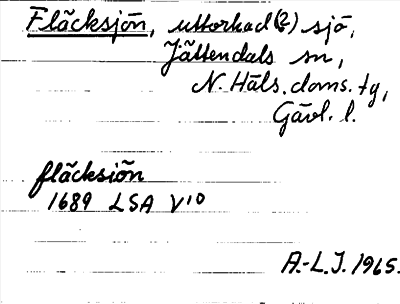 Fläcksjön, uttorkad (?) sjö,
Jättendals sn,
N. Häls. doms. tg,
Gävl. l.
fläcksiön
1689 LSA V10
A.-L.J. 1965.